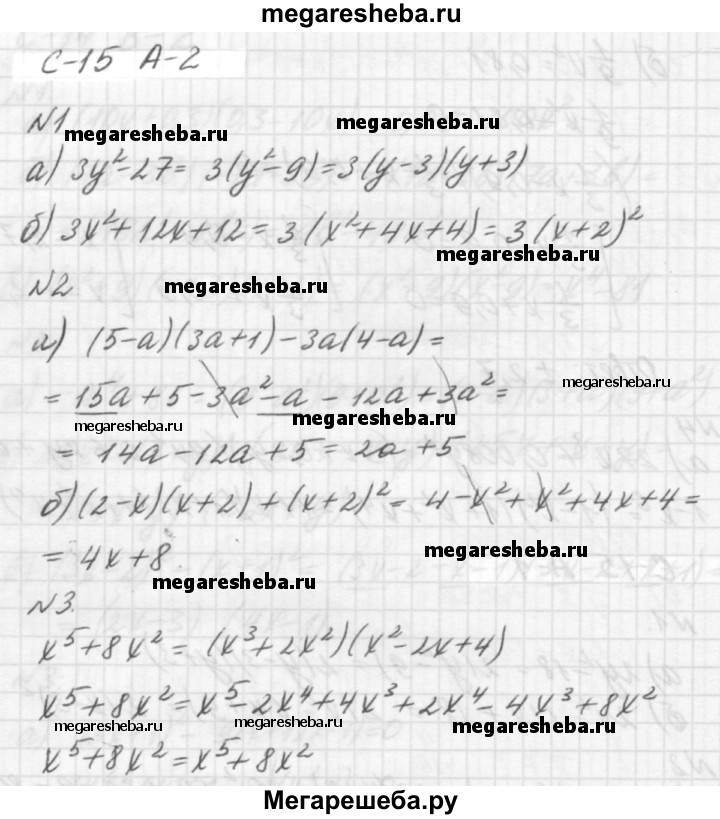 megaresheba.ru
С-15 А-2
N1
megaresheba.ru megaresheba.ru
а) 3y²-27= 3(y²-9)=3(y-3)(y+3)
б) 3x²+12x+12=3(x²+4x+4)=3(x+2)²
megaresheba.ru
N2 megaresheba.ru
а) (5-a)(3a+1)-3a(4-a)=
= 15a+5-3a²-a-12a+3a²=
megaresheba.ru
megaresheba.ru megaresheba.ru
= 14a-12a+5=2a+5
б) (2-x)(x+2)+(x+2)²= 4-x²+x²+4x+4=
= 4x+8
megaresheba.ru
megaresheba.ru
N3.
x⁵+8x²= (x³+2x²)(x²-2x+4)
x⁵+8x²=x⁵-2x⁴+4x³+2x⁴-4x³+8x²
megaresheba.ru megaresheba.ru megaresheba.ru
x⁵+8x²=x⁵+8x²
Мегарешеба.ру